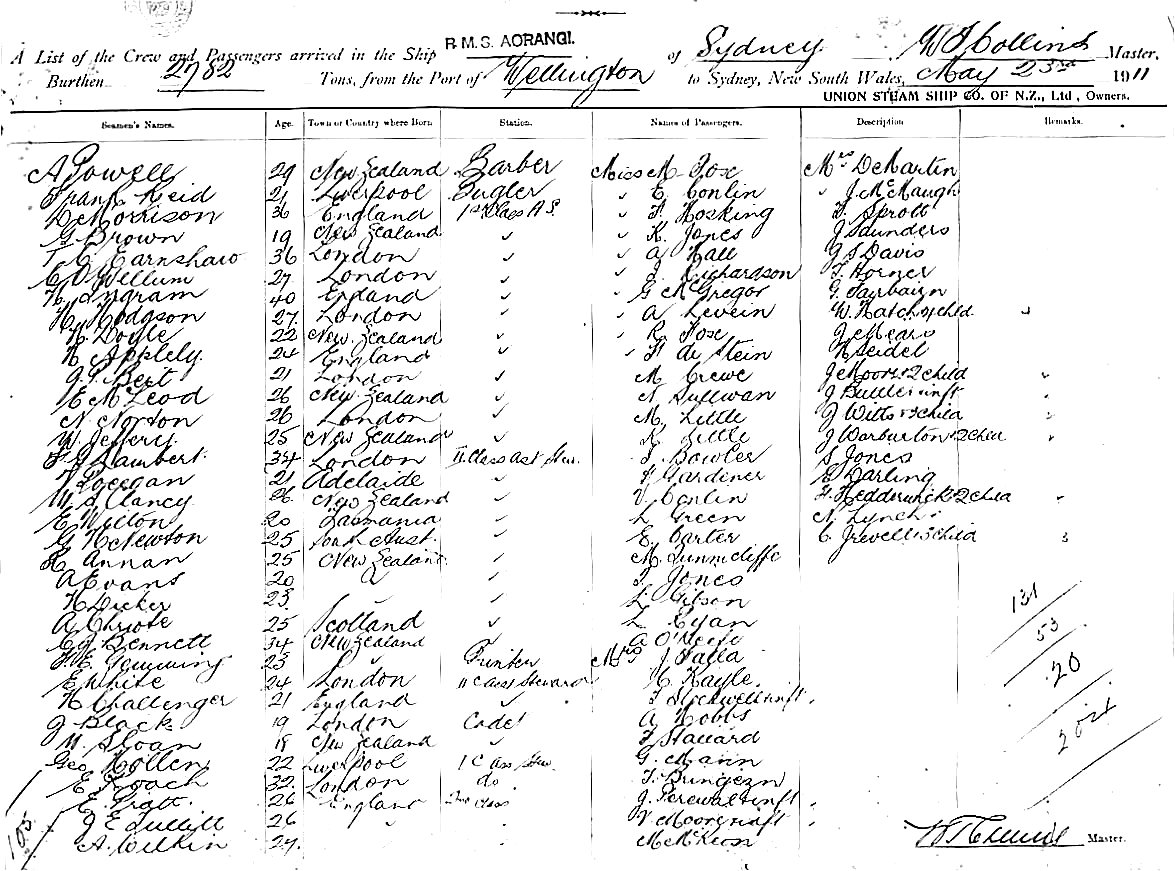 R.M.S. AORANGI.
A List of the Crew and Passengers arrived in the Ship of Sydney W J Collins Master,
Burthen 2782 Tons, from the Port of Wellington to Sydney, New South Wales, May 23rd 1911
UNION STEAM SHIP CO. OF N.Z., Ltd, Owners.
Seamen's Names. Age. Town or Country where Born Station. Names of Passengers. Description Remarks.
A Powell 29 New Zealand Barber Miss M Fox Mrs DeMartin
Frank Reid 21 Liverpool Bugler " E Conlin " J McMaugh
D Morrison 36 England 1st Class A S. " F Hosking F Sprott
G Brown 19 New Zealand " " K Jones J Saunders
Earnshaw 36 London " " A Hall G S Davis
Wellum 27 London " " J Richardson F Horner
H Ingram 40 England " " G McGregor G Fairbairn
H Hodgson 27 London " " A Levein W Hatch & child "
H Doyle 22 New Zealand " " R Fox J Mears
Appleby 24 England " " H de Stein Seidel
J Beit 21 London " M Crewe J Moors & 2 child "
E McLeod 26 New Zealand " N Sullivan J Buttler inft "
N Norton 26 London " M Little J Witts & 3 child "
W Jeffery 25 New Zealand " K Little J Warburton & 2 child "
Lambert 34 London II Class Ast Stew. J Bowler S Jones
21 Adelaide " Gardener E Darling
Clancy 26 New Zealand " V Conlin Hedderwick & 2 chd "
E Wilton 20 Tasmania " L Green N Lynch
G H Newton 25 South Aust. " E Carter C Grevell & 3 child 3
H Annan 25 New Zealand " M Tunnicliffe
A Evans 20 " " J Jones
H Dicker 23 " " L Gibson
A Christe 25 Scotland " L Egan
Bennett 34 New Zealand " A O'Neill
H E Gemming 23 " Printer Mrs J Falla
E White 24 London II C Asst Steward H Kayle
H Challenger 21 England " F Stockwell & inft "
J Black 19 London Cadet A Hobbs
W Sloan 18 New Zealand " F Stallard
Geo Hollen 22 Liverpool 1 C Ass Stew. G Mann
E Roach 32 London do
E Pratt 26 England 2nd Class J Perceval & inft "
J E Tullett 26 " " V Moore & inft "
A Wilkin 29 M McKeon
105
131
53
20
204
Master.